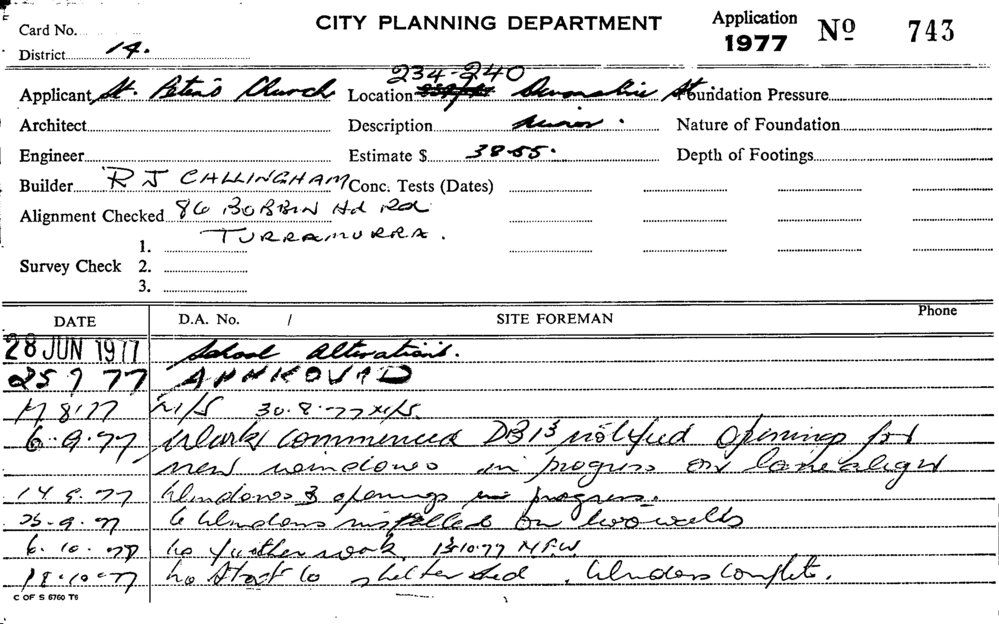 CITY PLANNING DEPARTMENT
Card No.
District 14.
Application
1977 Nº 743
Applicant St. Peter's Church Location 234-240 Devonshire St. Foundation Pressure
Architect Description Minor. Nature of Foundation
Engineer Estimate $ 3855. Depth of Footings
Builder R J CALLINGHAM Conc. Tests (Dates)
Alignment Checked 86 BOBBIN Hd Rd
TURRAMURRA.
1.
Survey Check 2.
3.
DATE D.A. No. / SITE FOREMAN Phone
28 JUN 1977 School Alterations.
25 7 77 APPROVED
8.77 N/S 30.8.77 N/S
6.9.77 Work commenced notified openings for
new windows in progress on lane align
14.9.77 Windows & openings in progress.
9.77 6 Windows installed on two walls
6.10.77 No further work 10.77
18.10.77 No Start to shelter shed. Windows complete.
C OF S 6760 T6